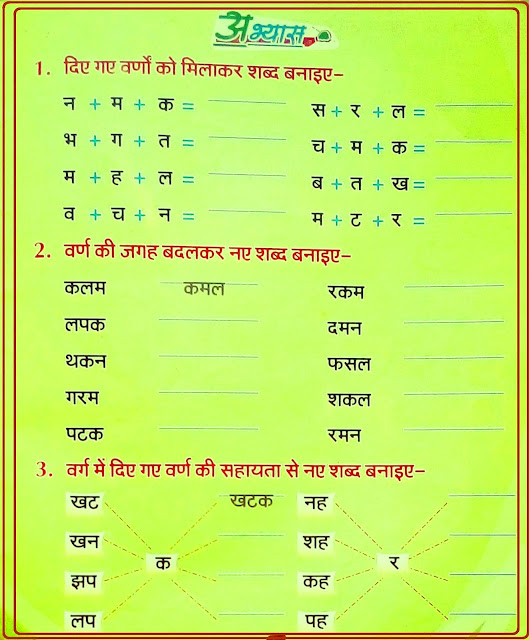 अभ्यास
1. दिए गए वर्णों को मिलाकर शब्द बनाइए–
न + म + क = स + र + ल =
भ + ग + त = च + म + क =
म + ह + ल = ब + त + ख =
व + च + न = म + ट + र =
2. वर्ण की जगह बदलकर नए शब्द बनाइए–
कलम कमल रकम
लपक दमन
थकन फसल
गरम शकल
पटक रमन
3. वर्ग में दिए गए वर्ण की सहायता से नए शब्द बनाइए–
खट खटक नह
खन शह
क र
झप कह
लप पह